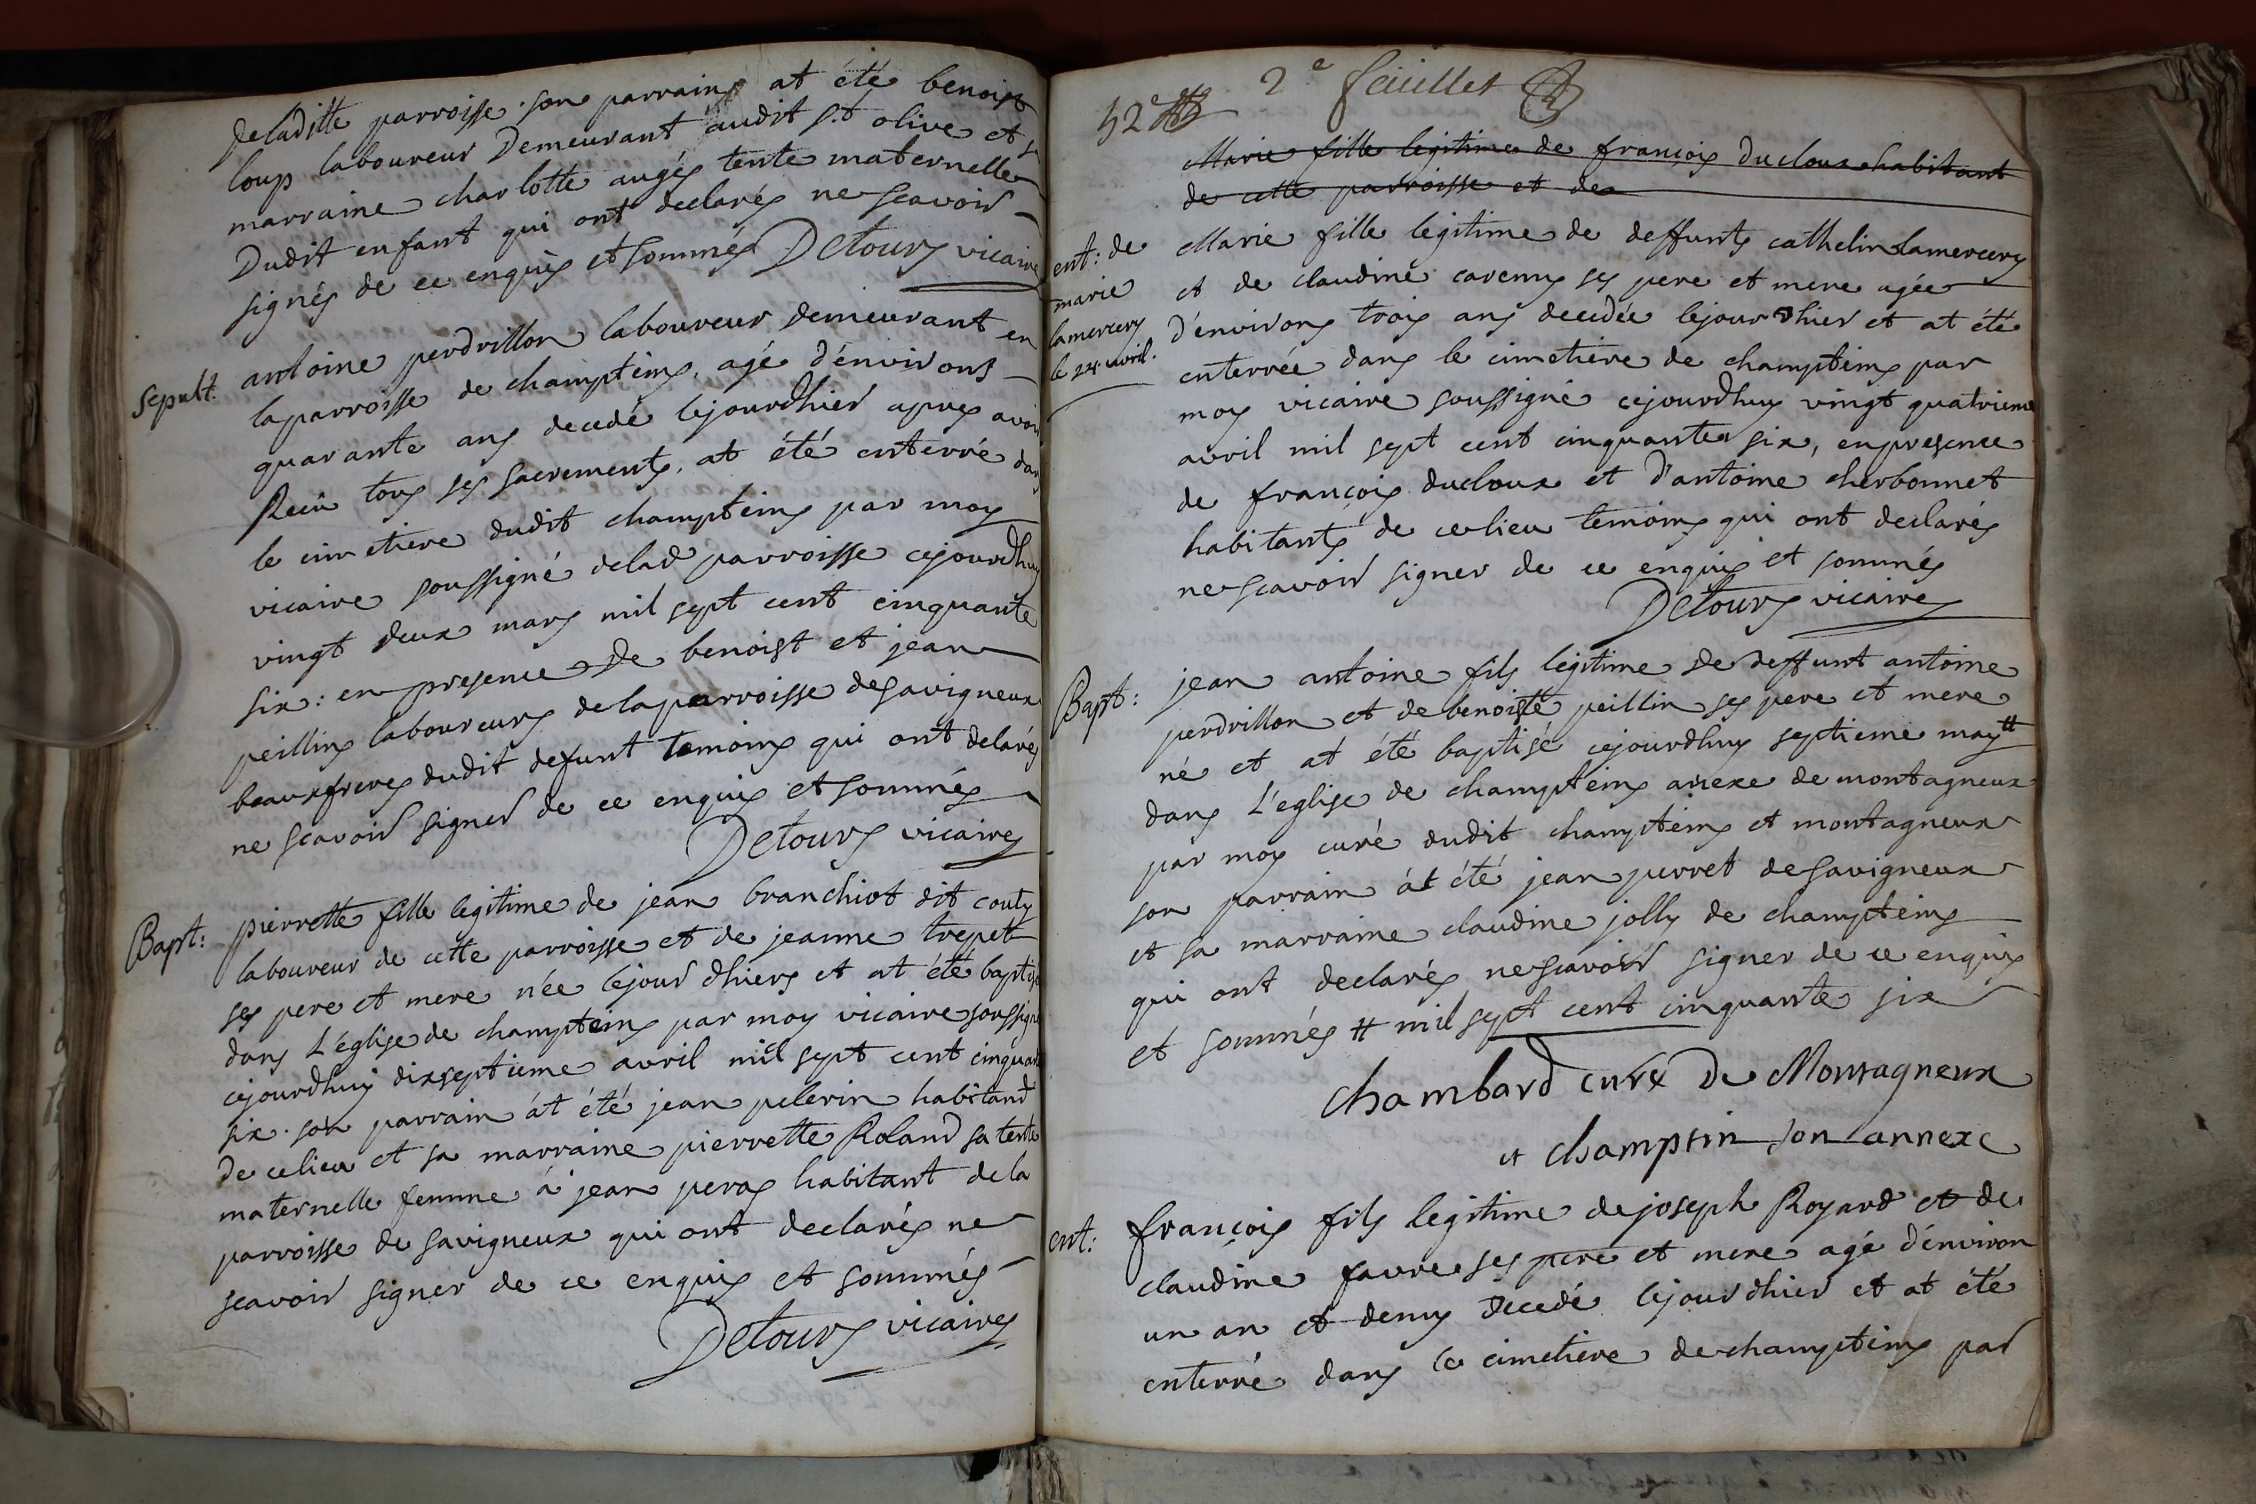 deladitte parroisse. son parrain at été benoist
loup laboureur demeurant audit st olive et sa
marraine charlotte augés tente maternelle
dudit enfant qui ont declarés ne scavoir
signés de ce enquis et sommés Detours vicaire
sepult.
antoine perdrillon laboureur demeurant en
laparroisse de champteins, agé d'environs
quarante ans decedé lejourdhier apres avoir
Reçu tous ses sacrements, at été enterré dans
le cimetiere dudit champteins par moy
vicaire soussigné delad parroisse cejourdhuy
vingt deux mars mil sept cent cinquante
six: en presence de benoist et jean
peillin laboureurs de laparroisse desavigneux
beauxfreres dudit defunt temoins qui ont delarés
ne scavoir signer de ce enquis et sommés
Detours vicaire
Bapt:
pierrette fille legitime de jean branchiot dit couty
laboureur de cette parroisse et de jeanne trepet
ses pere et mere née lejour dhiers et at été baptisé
dans l'église de champteins par moy vicaire soussigné
cejourdhuy dixseptieme avril mil sept cent cinquante
six. son parrain at été jean pelerin habitand
de celieu et sa marraine pierrette Roland sa tente
maternelle femme à jean peras habitant de la
parroisse de savigneux qui ont declarés ne
scavoir signer de ce enquis et sommés
Detours vicaire
52e
2e feuillet
Marie fille legitime de françois ducloux habitant
de cette parroisse et de
ent: de
marie
lamercery
le 24 avril.
Marie fille legitime de deffunts cathelin Lamercery
et de claudine caremy ses pere et mere agée
d'environs trois ans decedée lejour dhier et at été
enterrée dans le cimetiere de champteins par
moy vicaire soussigné cejourdhuy vingt quatrieme
avril mil sept cent cinquante six, enpresence
de françois ducloux et d'antoine cherbonnet
habitants de celieu temoins qui ont declarés
ne scavoir signer de ce enquis et sommés
Detours vicaire
Bapt:
jean antoine fils legitime de deffunt antoine
perdrillon et de benoiste peillin ses pere et mere
né et at été baptisé cejourdhuy septieme may #
dans L'eglise de champteins anexe de montagneux
par moy curé dudit champteins et montagneux
son parrain at été jean perret de savigneux
et sa marraine claudine jolly de champteins
qui ont declarés ne scavoir signer de ce enquis
et sommés # mil sept cent cinquante six
chambard curé de Montagneux
et champtin son annexe
ent:
françois fils legitime de joseph Royard et de
claudine favre ses pere et mere agé d'environ
un an et demy decedé lejour dhier et at été
enterré dans le cimetiere de champteins par